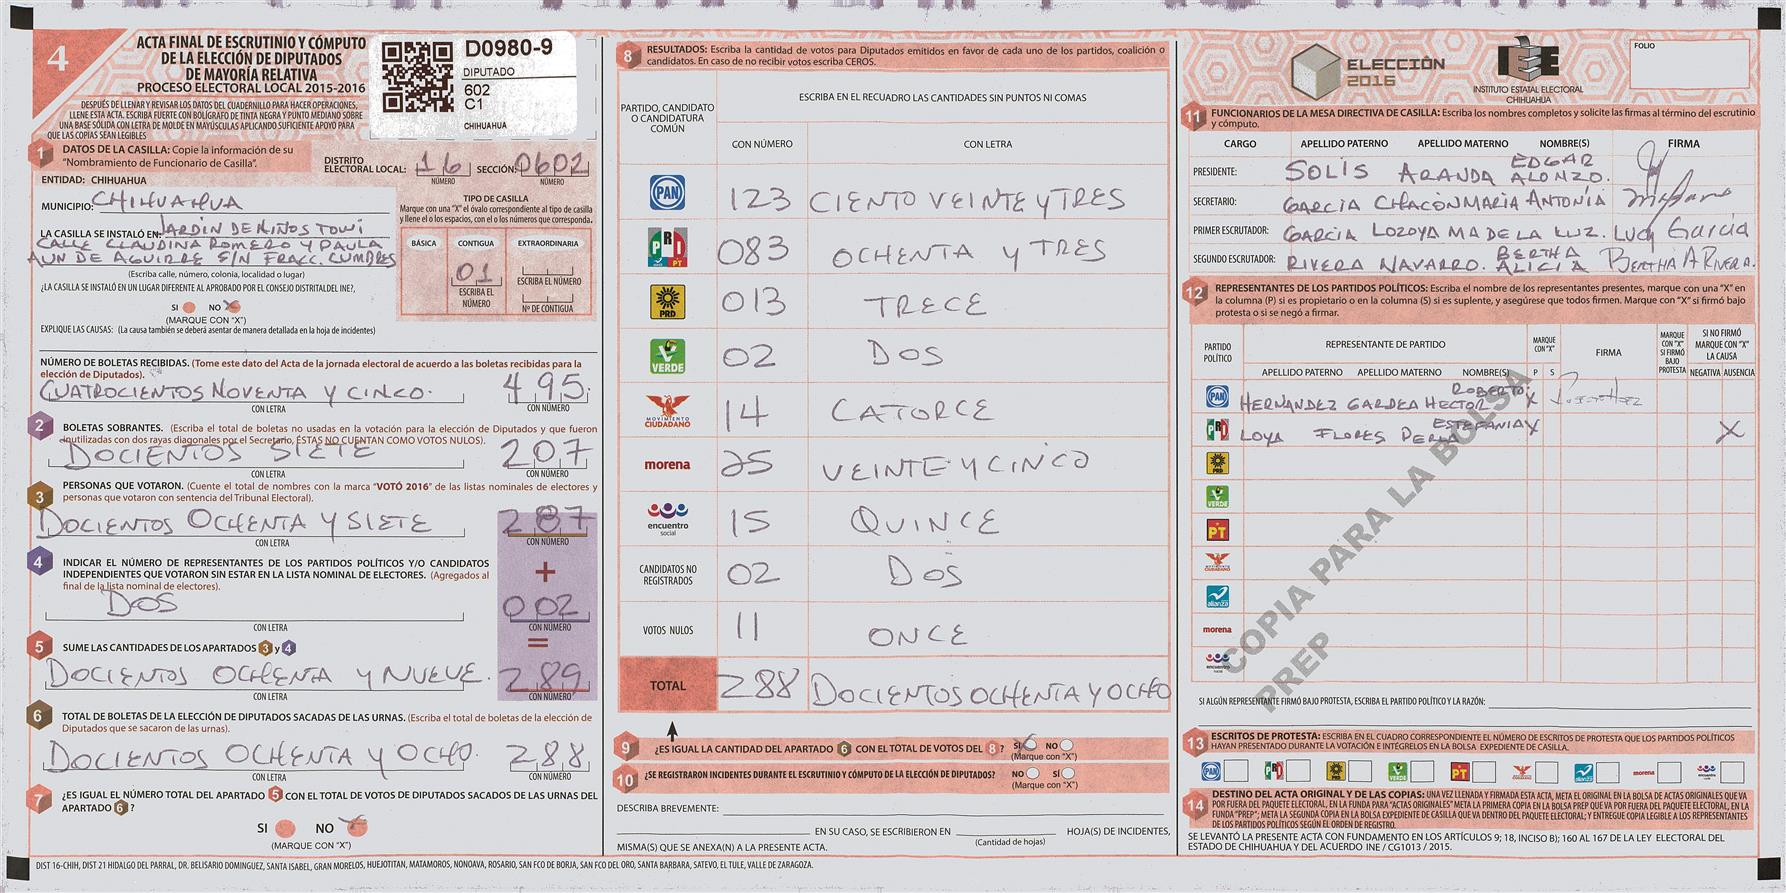 4
ACTA FINAL DE ESCRUTINIO Y CÓMPUTO
DE LA ELECCIÓN DE DIPUTADOS
DE MAYORÍA RELATIVA
PROCESO ELECTORAL LOCAL 2015-2016
DESPUÉS DE LLENAR Y REVISAR LOS DATOS DEL CUADERNILLO PARA HACER OPERACIONES,
LLENE ESTA ACTA. ESCRIBA FUERTE CON BOLÍGRAFO DE TINTA NEGRA Y PUNTO MEDIANO SOBRE
UNA BASE SÓLIDA CON LETRA DE MOLDE EN MAYÚSCULAS APLICANDO SUFICIENTE APOYO PARA
QUE LAS COPIAS SEAN LEGIBLES
D0980-9
DIPUTADO
602
C1
CHIHUAHUA
1 DATOS DE LA CASILLA: Copie la información de su
"Nombramiento de Funcionario de Casilla".
DISTRITO
ELECTORAL LOCAL: 16 SECCIÓN: 0602
NÚMERO NÚMERO
ENTIDAD: CHIHUAHUA
MUNICIPIO: CHIHUAHUA
LA CASILLA SE INSTALÓ EN: JARDIN DE NIÑOS TOWI
CALLE CLAUDINA ROMERO Y PAULA
AUN DE AGUIRRE S/N FRACC. CUMBRES
(Escriba calle, número, colonia, localidad o lugar)
TIPO DE CASILLA
Marque con una "X" el óvalo correspondiente al tipo de casilla
y llene el o los espacios, con el o los números que corresponda.
BÁSICA CONTIGUA EXTRAORDINARIA
01
ESCRIBA EL NÚMERO ESCRIBA EL NÚMERO
Nº DE CONTIGUA
¿LA CASILLA SE INSTALÓ EN UN LUGAR DIFERENTE AL APROBADO POR EL CONSEJO DISTRITAL DEL INE?,
SI NO X
(MARQUE CON "X")
EXPLIQUE LAS CAUSAS: (La causa también se deberá asentar de manera detallada en la hoja de incidentes)
NÚMERO DE BOLETAS RECIBIDAS. (Tome este dato del Acta de la jornada electoral de acuerdo a las boletas recibidas para la
elección de Diputados).
CUATROCIENTOS NOVENTA Y CINCO. 495.
CON LETRA CON NÚMERO
2 BOLETAS SOBRANTES. (Escriba el total de boletas no usadas en la votación para la elección de Diputados y que fueron
inutilizadas con dos rayas diagonales por el Secretario, ÉSTAS NO CUENTAN COMO VOTOS NULOS).
DOCIENTOS SIETE 207
CON LETRA CON NÚMERO
3 PERSONAS QUE VOTARON. (Cuente el total de nombres con la marca "VOTÓ 2016" de las listas nominales de electores y
personas que votaron con sentencia del Tribunal Electoral).
DOCIENTOS OCHENTA Y SIETE 287
CON LETRA CON NÚMERO
4 INDICAR EL NÚMERO DE REPRESENTANTES DE LOS PARTIDOS POLÍTICOS Y/O CANDIDATOS
INDEPENDIENTES QUE VOTARON SIN ESTAR EN LA LISTA NOMINAL DE ELECTORES. (Agregados al
final de la lista nominal de electores).
+
DOS 002
CON LETRA CON NÚMERO
5 SUME LAS CANTIDADES DE LOS APARTADOS 3 y 4
=
DOCIENTOS OCHENTA Y NUEVE. 289
CON LETRA CON NÚMERO
6 TOTAL DE BOLETAS DE LA ELECCIÓN DE DIPUTADOS SACADAS DE LAS URNAS. (Escriba el total de boletas de la elección de
Diputados que se sacaron de las urnas).
DOCIENTOS OCHENTA Y OCHO. 288
CON LETRA CON NÚMERO
7 ¿ES IGUAL EL NÚMERO TOTAL DEL APARTADO 5 CON EL TOTAL DE VOTOS DE DIPUTADOS SACADOS DE LAS URNAS DEL
APARTADO 6 ?
SI NO X
(MARQUE CON "X")
DIST 16-CHIH, DIST 21 HIDALGO DEL PARRAL, DR. BELISARIO DOMINGUEZ, SANTA ISABEL, GRAN MORELOS, HUEJOTITAN, MATAMOROS, NONOAVA, ROSARIO, SAN FCO DE BORJA, SAN FCO DEL ORO, SANTA BARBARA, SATEVO, EL TULE, VALLE DE ZARAGOZA.
8 RESULTADOS: Escriba la cantidad de votos para Diputados emitidos en favor de cada uno de los partidos, coalición o
candidatos. En caso de no recibir votos escriba CEROS.
PARTIDO, CANDIDATO
O CANDIDATURA
COMÚN
ESCRIBA EN EL RECUADRO LAS CANTIDADES SIN PUNTOS NI COMAS
CON NÚMERO CON LETRA
PAN 123 CIENTO VEINTE Y TRES
PRI PT 083 OCHENTA Y TRES
PRD 013 TRECE
VERDE 02 DOS
MOVIMIENTO CIUDADANO 14 CATORCE
morena 25 VEINTE Y CINCO
encuentro social 15 QUINCE
CANDIDATOS NO REGISTRADOS 02 DOS
VOTOS NULOS 11 ONCE
TOTAL 288 DOCIENTOS OCHENTA Y OCHO
9 ¿ES IGUAL LA CANTIDAD DEL APARTADO 6 CON EL TOTAL DE VOTOS DEL 8 ? SI X NO
(Marque con "X")
10 ¿SE REGISTRARON INCIDENTES DURANTE EL ESCRUTINIO Y CÓMPUTO DE LA ELECCIÓN DE DIPUTADOS? NO SÍ
(Marque con "X")
DESCRIBA BREVEMENTE:
EN SU CASO, SE ESCRIBIERON EN HOJA(S) DE INCIDENTES,
(Cantidad de hojas)
MISMA(S) QUE SE ANEXA(N) A LA PRESENTE ACTA.
ELECCIÓN
2016
IEE
INSTITUTO ESTATAL ELECTORAL
CHIHUAHUA
FOLIO
11 FUNCIONARIOS DE LA MESA DIRECTIVA DE CASILLA: Escriba los nombres completos y solicite las firmas al término del escrutinio
y cómputo.
CARGO APELLIDO PATERNO APELLIDO MATERNO NOMBRE(S) FIRMA
PRESIDENTE: SOLIS ARANDA EDGAR ALONZO.
SECRETARIO: GARCIA CHACON MARIA ANTONIA
PRIMER ESCRUTADOR: GARCIA LOZOYA MA DE LA LUZ. Lucy García
SEGUNDO ESCRUTADOR: RIVERA NAVARRO. BERTHA ALICIA BERTHA A RIVERA.
12 REPRESENTANTES DE LOS PARTIDOS POLÍTICOS: Escriba el nombre de los representantes presentes, marque con una "X" en
la columna (P) si es propietario o en la columna (S) si es suplente, y asegúrese que todos firmen. Marque con "X" si firmó bajo
protesta o si se negó a firmar.
PARTIDO POLÍTICO REPRESENTANTE DE PARTIDO MARQUE CON "X" FIRMA MARQUE CON "X" SI FIRMÓ BAJO PROTESTA SI NO FIRMÓ MARQUE CON "X" LA CAUSA
APELLIDO PATERNO APELLIDO MATERNO NOMBRE(S) P S NEGATIVA AUSENCIA
PAN HERNANDEZ GARDEA HECTOR ROBERTO X
PRI LOYA FLORES PERLA ESTEFANIA X X
PRD
VERDE
PT
MOVIMIENTO CIUDADANO
alianza
morena
encuentro social
COPIA PARA LA BOLSA
PREP
SI ALGÚN REPRESENTANTE FIRMÓ BAJO PROTESTA, ESCRIBA EL PARTIDO POLÍTICO Y LA RAZÓN:
13 ESCRITOS DE PROTESTA: ESCRIBA EN EL CUADRO CORRESPONDIENTE EL NÚMERO DE ESCRITOS DE PROTESTA QUE LOS PARTIDOS POLÍTICOS
HAYAN PRESENTADO DURANTE LA VOTACIÓN E INTÉGRELOS EN LA BOLSA EXPEDIENTE DE CASILLA.
PAN PRI PRD VERDE PT alianza morena
14 DESTINO DEL ACTA ORIGINAL Y DE LAS COPIAS: UNA VEZ LLENADA Y FIRMADA ESTA ACTA, META EL ORIGINAL EN LA BOLSA DE ACTAS ORIGINALES QUE VA
POR FUERA DEL PAQUETE ELECTORAL, EN LA FUNDA PARA "ACTAS ORIGINALES" META LA PRIMERA COPIA EN LA BOLSA PREP QUE VA POR FUERA DEL PAQUETE ELECTORAL, EN LA
FUNDA "PREP"; META LA SEGUNDA COPIA EN LA BOLSA EXPEDIENTE DE CASILLA QUE VA DENTRO DEL PAQUETE ELECTORAL; Y ENTREGUE COPIAS LEGIBLES A LOS REPRESENTANTES
DE LOS PARTIDOS POLÍTICOS SEGÚN EL ORDEN DE REGISTRO.
SE LEVANTÓ LA PRESENTE ACTA CON FUNDAMENTO EN LOS ARTÍCULOS 9; 18, INCISO B); 160 AL 167 DE LA LEY ELECTORAL DEL
ESTADO DE CHIHUAHUA Y DEL ACUERDO INE / CG1013 / 2015.